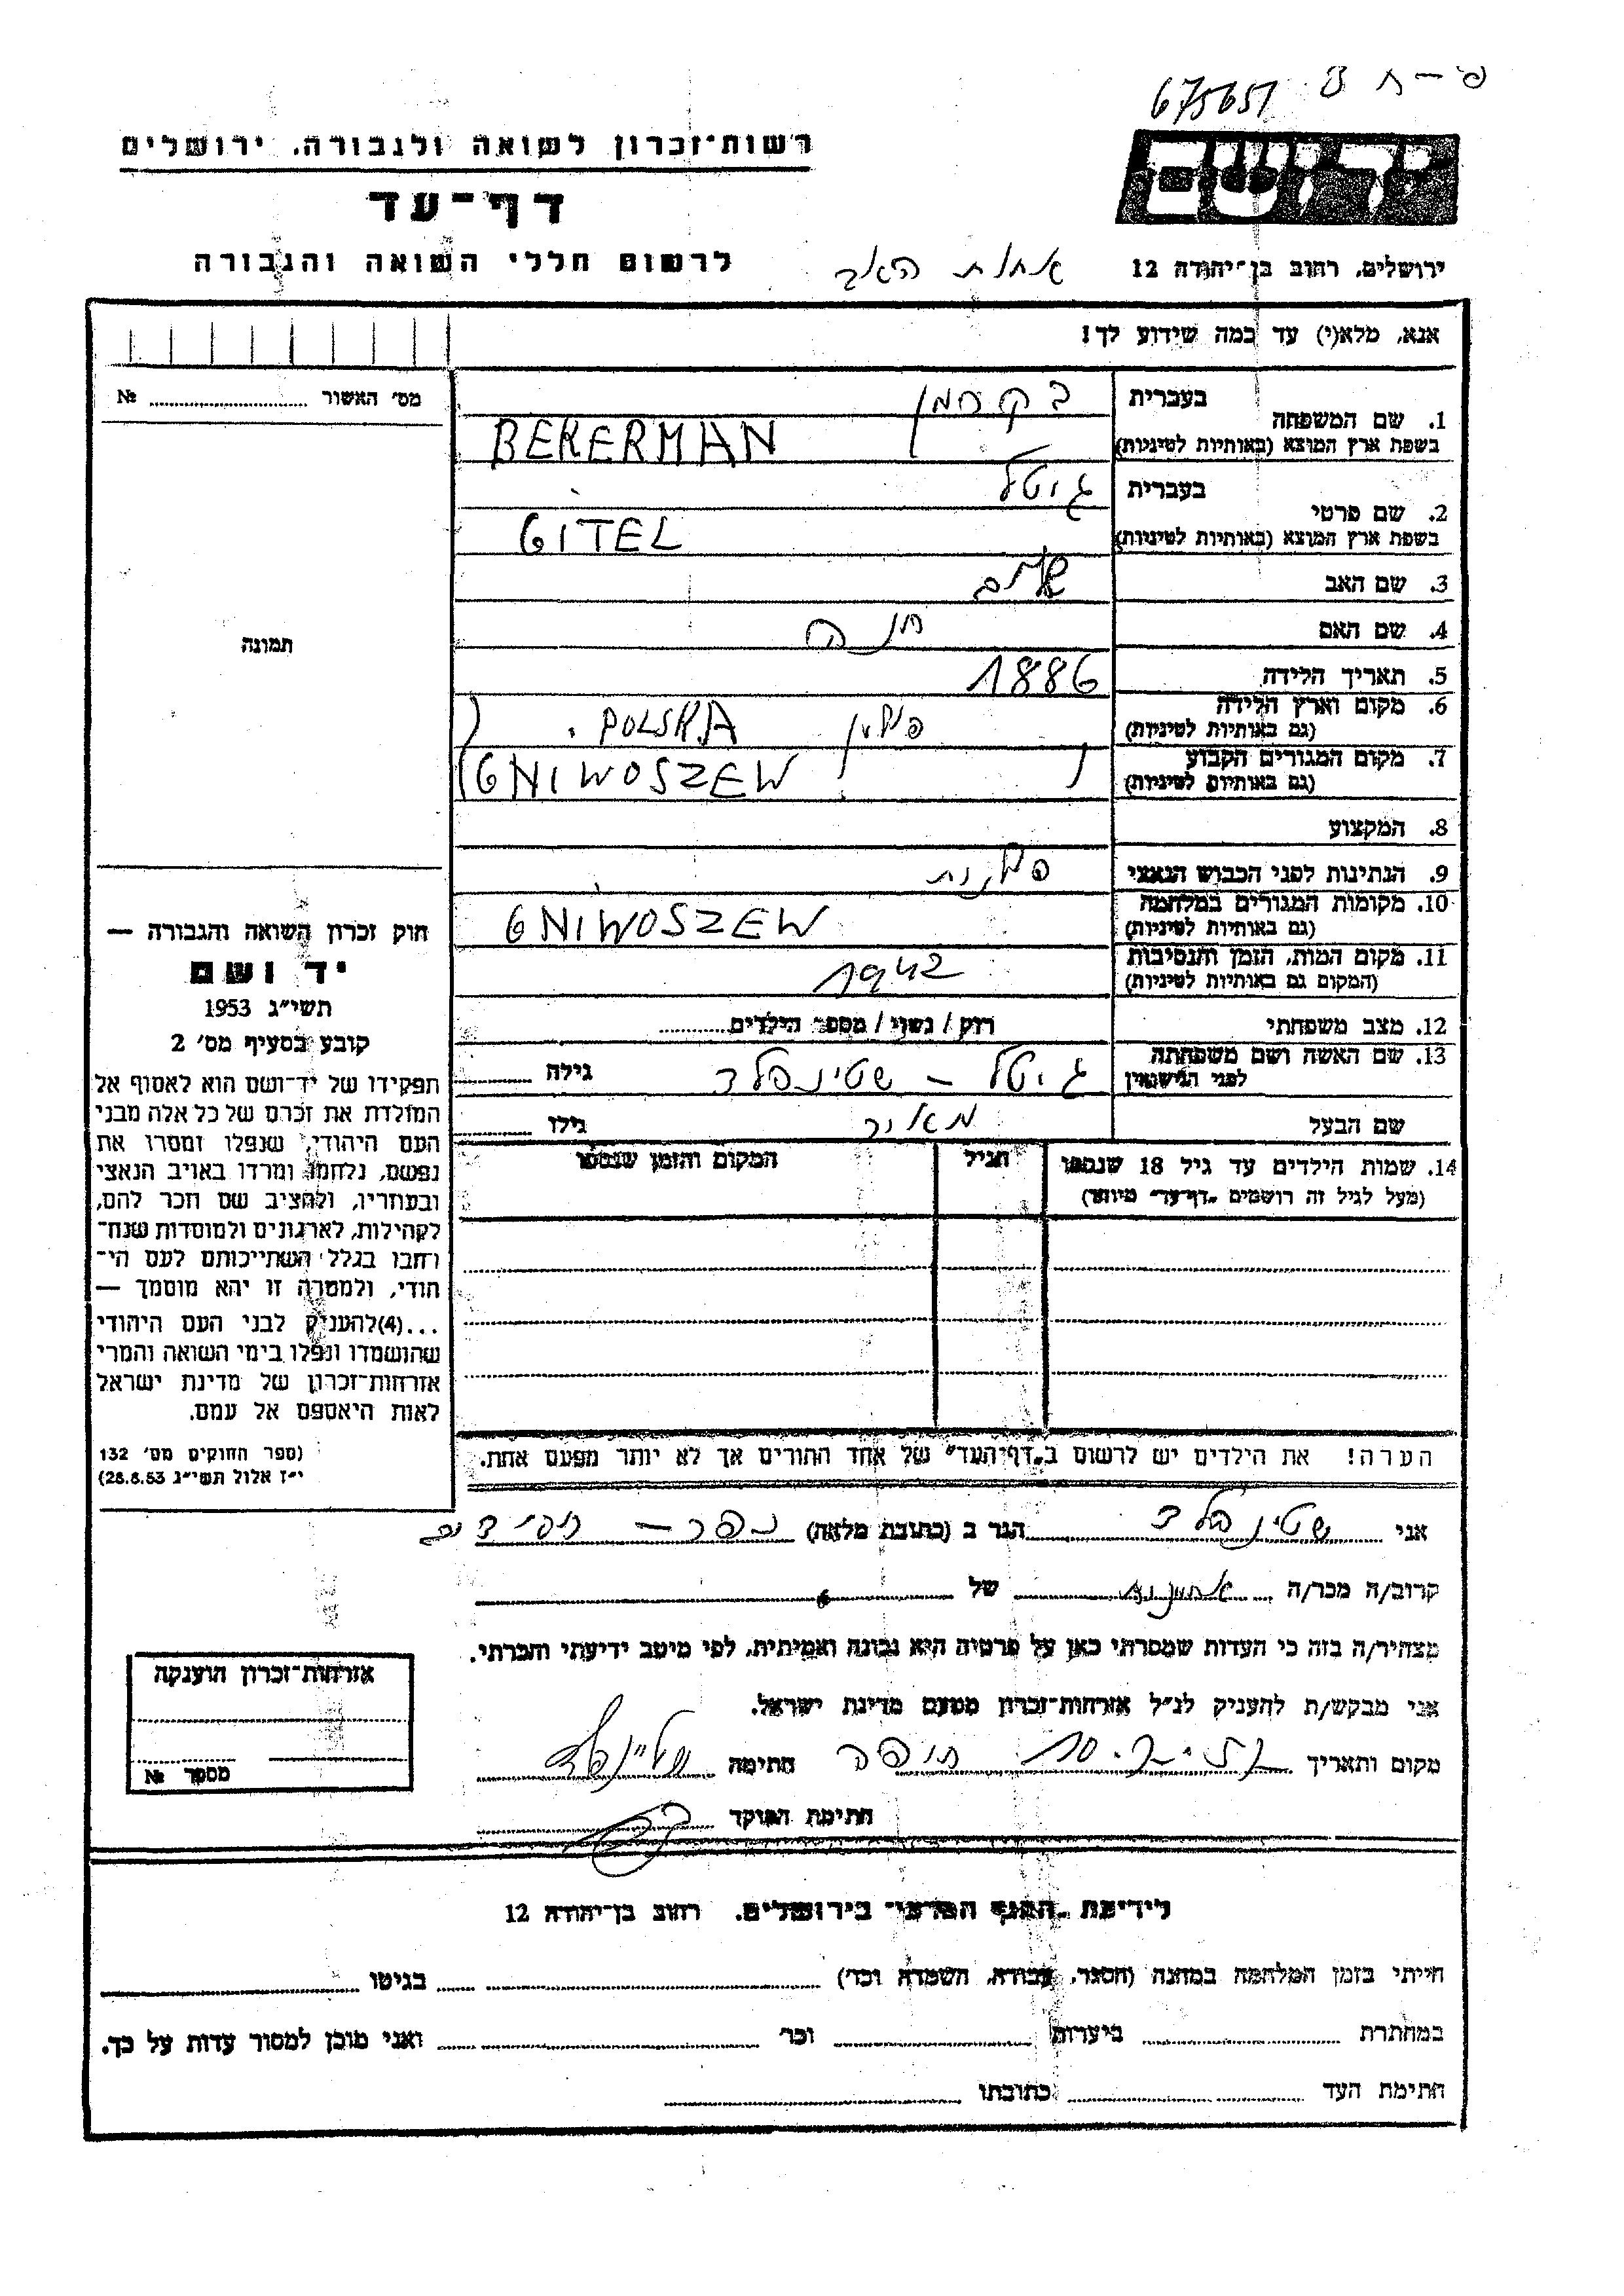 675651
יד ושם
רשות־זכרון לשואה ולגבורה, ירושלים
דף־עד
לרשום חללי השואה והגבורה
אחות האב
ירושלים, רחוב בן־יהודה 12
אנא, מלא(י) עד כמה שידוע לך!
מס' האשור № 
1. שם המשפחה
בעברית
בקרמן
בשפת ארץ המוצא (באותיות לטיניות)
BEKERMAN
2. שם פרטי
בעברית
גיטל
בשפת ארץ המוצא (באותיות לטיניות)
GITEL
3. שם האב
4. שם האם חנה
תמונה
5. תאריך הלידה 1886
6. מקום וארץ הלידה
(גם באותיות לטיניות)
פולין POLSKA
7. מקום המגורים הקבוע
(גם באותיות לטיניות)
GNIWOSZEW
8. המקצוע
9. הנתינות לפני הכבוש הנאצי פולנית
10. מקומות המגורים במלחמה
(גם באותיות לטיניות)
GNIWOSZEW
11. מקום המות, הזמן והנסיבות
(המקום גם באותיות לטיניות)
1942
12. מצב משפחתי רוק / נשוי / מספר הילדים
13. שם האשה ושם משפחתה
לפני הנישואין
גיטל – שטינפלד גילה
שם הבעל מאיר גילו
14. שמות הילדים עד גיל 18 שנספו
(מעל לגיל זה רושמים "דף־עד" מיוחד)
הגיל
המקום והזמן שנספו
הערה! את הילדים יש לרשום ב"דף־העד" של אחד ההורים אך לא יותר מפעם אחת.
חוק זכרון השואה והגבורה —
יד ושם
תשי"ג 1953
קובע בסעיף מס' 2
תפקידו של יד־ושם הוא לאסוף אל
המולדת את זכרם של כל אלה מבני
העם היהודי, שנפלו ומסרו את
נפשם, נלחמו ומרדו באויב הנאצי
ובעוזריו, ולהציב שם וזכר להם,
לקהילות, לארגונים ולמוסדות שנח־
רבו בגלל השתייכותם לעם הי־
הודי, ולמטרה זו יהא מוסמך —
...(4)להעניק לבני העם היהודי
שהושמדו ונפלו בימי השואה והמרי
אזרחות־זכרון של מדינת ישראל
לאות היאספם אל עמם.
(ספר החוקים מס' 132
י"ז אלול תשי"ג 28.8.53)
אני שטינפלד הגר ב (כתובת מלאה) כפר – חסידים
קרוב/ה מכר/ה של
מצהיר/ה בזה כי העדות שמסרתי כאן על פרטיה היא נכונה ואמיתית, לפי מיטב ידיעתי והכרתי.
אני מבקש/ת להעניק לנ"ל אזרחות־זכרון מטעם מדינת ישראל.
מקום ותאריך חיפה חתימה שטיינפלד
חתימת הפוקד
אזרחות־זכרון הוענקה
מספר №
לידיעת "הגנזך המרכזי" בירושלים, רחוב בן־יהודה 12
הייתי בזמן המלחמה במחנה (הסגר, עבודה, השמדה וכד') בגיטו
במחתרת ביערות וכו' ואני מוכן למסור עדות על כך.
חתימת העד כתובתו